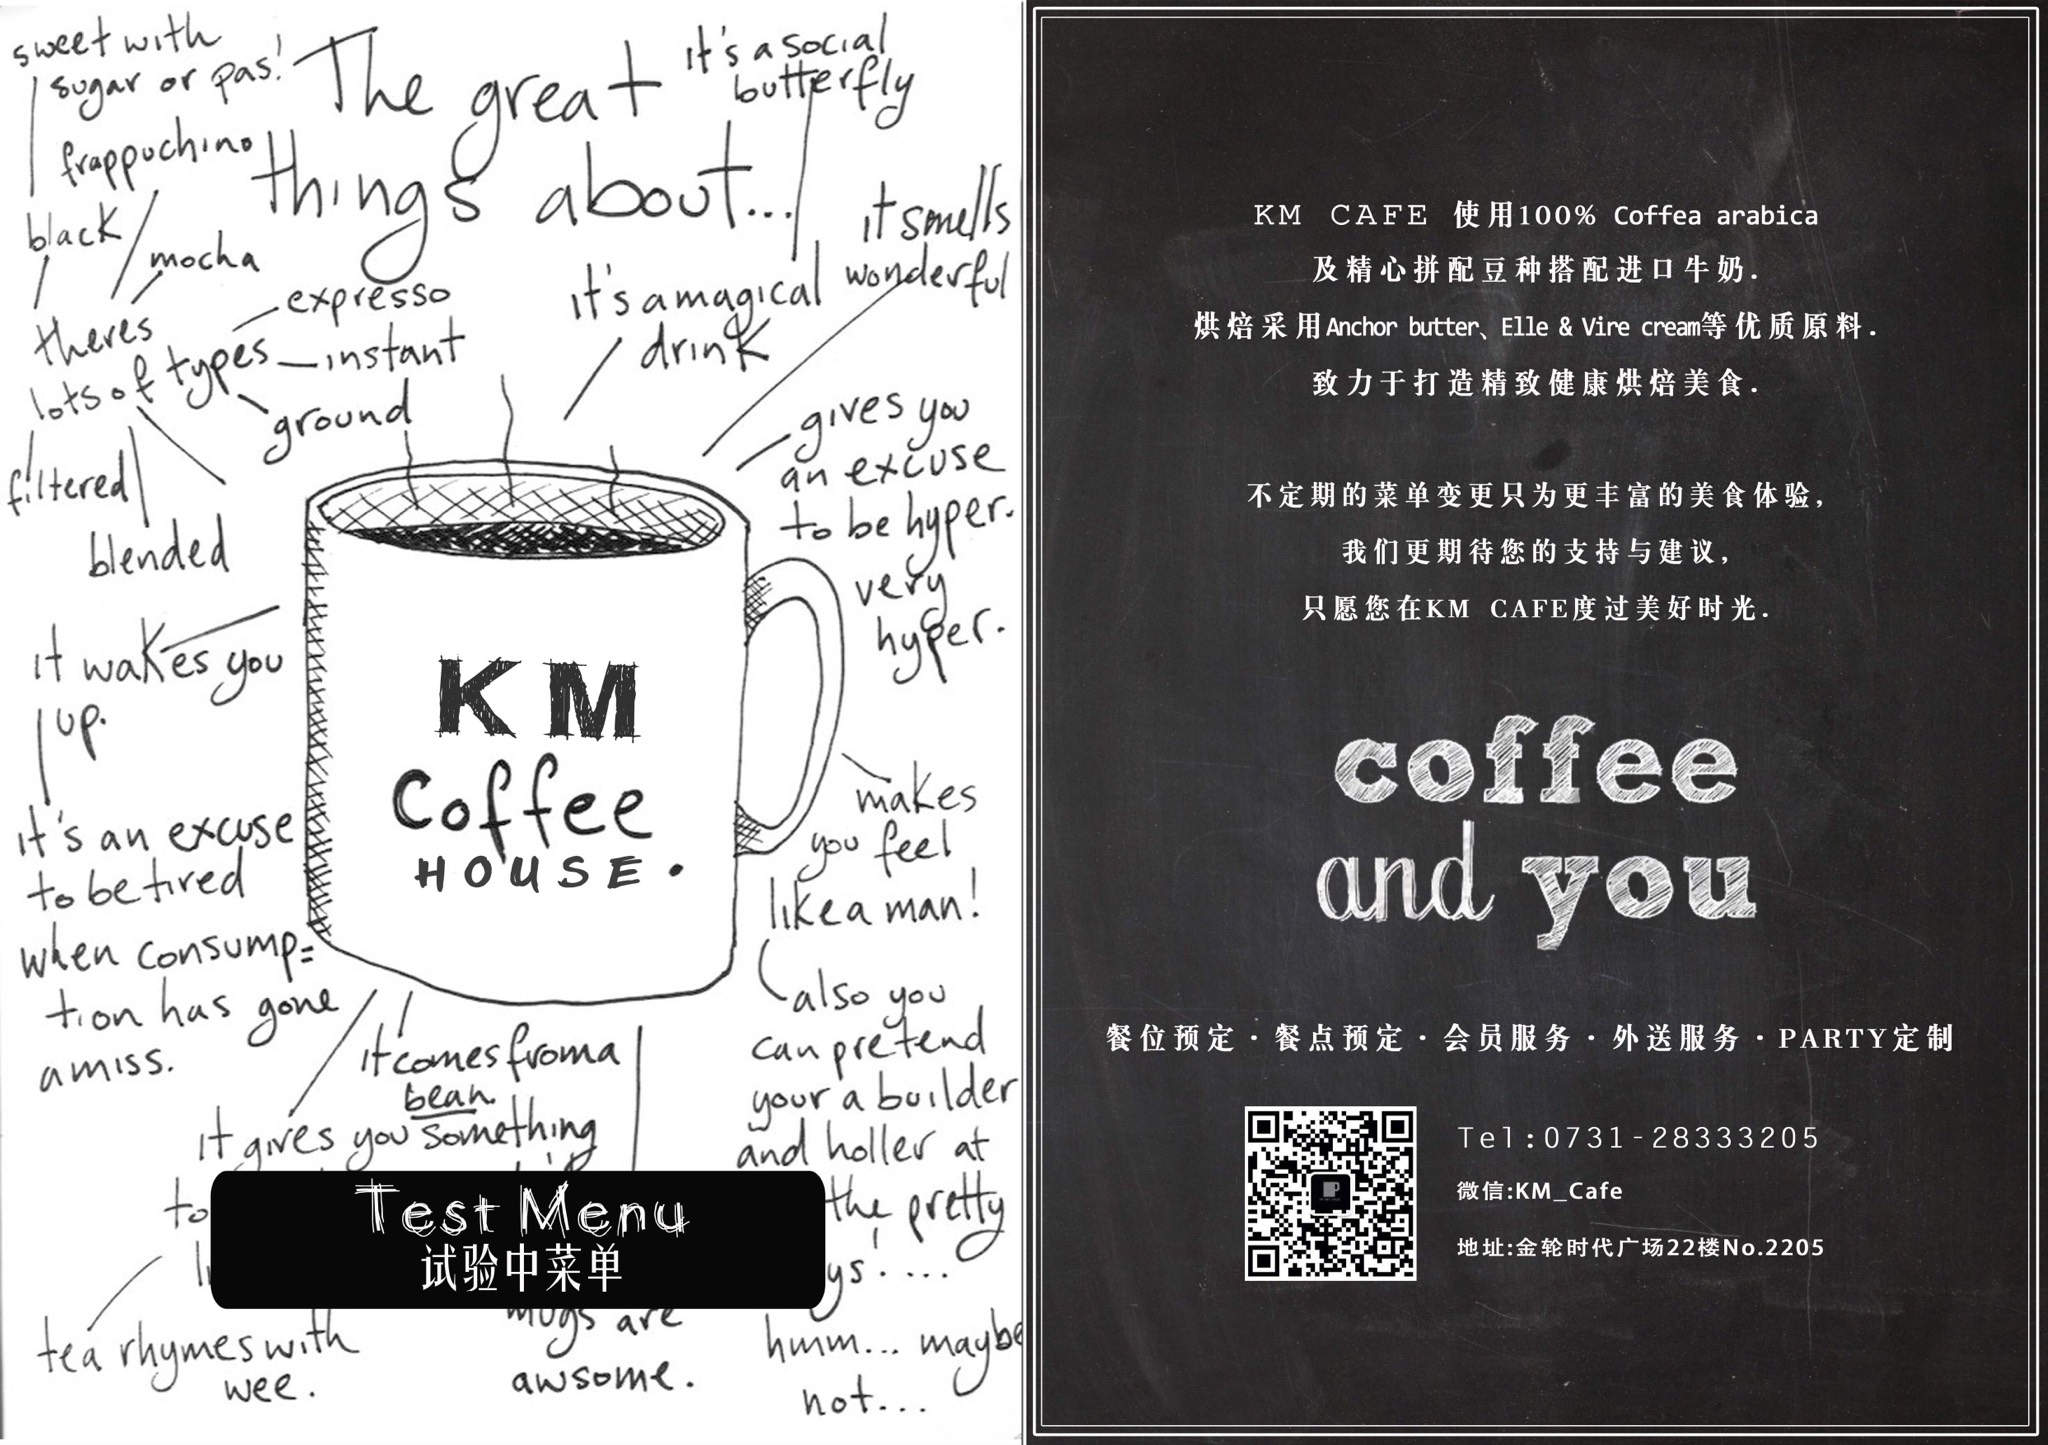 sweet with
sugar or pas!
The great
things about...
it's a social
butterfly
frappuchino
black
mocha
it smells
wonderful
expresso
it's a magical
drink
theres
lots of types
instant
ground
gives you
an excuse
to be hyper.
very
hyper.
filtered
blended
it wakes you
up.
KM
Coffee
HOUSE.
makes
you feel
like a man!
it's an excuse
to be tired
when consump=
tion has gone
amiss.
also you
can pretend
your a builder
and holler at
the pretty
ys!....
hmm... maybe
not...
it comes from a
bean.
it gives you something
to
Test Menu
试验中菜单
mugs are
awsome.
tea rhymes with
wee.
KM CAFE 使用100% Coffea arabica
及精心拼配豆种搭配进口牛奶.
烘焙采用Anchor butter、Elle & Vire cream等优质原料.
致力于打造精致健康烘焙美食.
不定期的菜单变更只为更丰富的美食体验,
我们更期待您的支持与建议,
只愿您在KM CAFE度过美好时光.
coffee
and you
餐位预定·餐点预定·会员服务·外送服务·PARTY定制
Tel:0731-28333205
微信:KM_Cafe
地址:金轮时代广场22楼No.2205